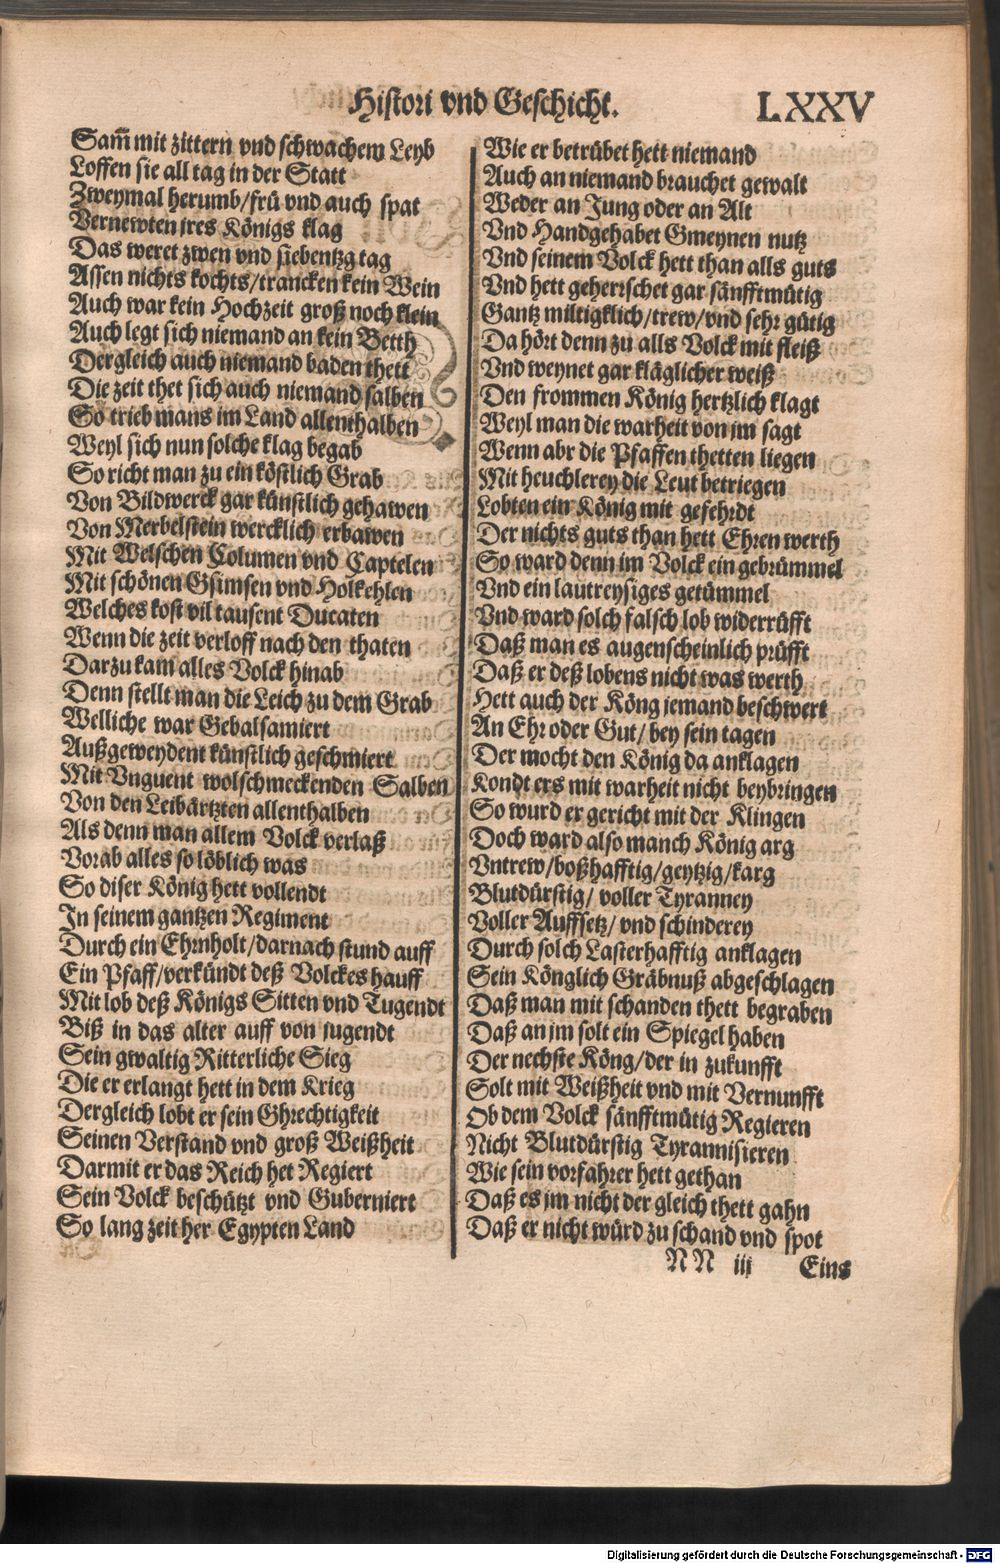 Histori vnd Geschicht.
LXXV
Sam̃ mit zittern vnd schwachem Leyb
Loffen sie all tag in der Statt
Zweymal herumb/frü vnd auch spat
Vernewten jres Königs klag
Das weret zwen vnd siebentzg tag
Assen nichts kochts/trancken kein Wein
Auch war kein Hochzeit groß noch klein
Auch legt sich niemand an kein Betth
Dergleich auch niemand baden thett
Die zeit thet sich auch niemand salben
So trieb mans im Land allenthalben
Weyl sich nun solche klag begab
So richt man zu ein köstlich Grab
Von Bildwerck gar künstlich gehawen
Von Merbelstein wercklich erbawen
Mit Welschen Columen vnd Captelen
Mit schönen Gsimsen vnd Holkehlen
Welches kost vil tausent Ducaten
Wenn die zeit verloff nach den thaten
Darzu kam alles Volck hinab
Denn stellt man die Leich zu dem Grab
Welliche war Gebalsamiert
Außgeweydent künstlich geschmiert
Mit Vnguent wolschmeckenden Salben
Von den Leibärtzten allenthalben
Als denn man allem Volck verlaß
Vorab alles so löblich was
So diser König hett vollendt
In seinem gantzen Regiment
Durch ein Ehrnholt/darnach stund auff
Ein Pfaff/verkündt deß Volckes hauff
Mit lob deß Königs Sitten vnd Tugendt
Biß in das alter auff von jugendt
Sein gwaltig Ritterliche Sieg
Die er erlangt hett in dem Krieg
Dergleich lobt er sein Ghrechtigkeit
Seinen Verstand vnd groß Weißheit
Darmit er das Reich het Regiert
Sein Volck beschützt vnd Guberniert
So lang zeit her Egypten Land
Wie er betrübet hett niemand
Auch an niemand brauchet gewalt
Weder an Jung oder an Alt
Vnd Handgehabet Gmeynen nutz
Vnd seinem Volck hett than alls guts
Vnd hett geherrschet gar sänfftmütig
Gantz miltigklich/trew/vnd sehr gütig
Da hört denn zu alls Volck mit fleiß
Vnd weynet gar kläglicher weiß
Den frommen König hertzlich klagt
Weyl man die warheit von jm sagt
Wenn abr die Pfaffen thetten liegen
Mit heuchlerey die Leut betriegen
Lobten ein König mit gefehrdt
Der nichts guts than hett Ehren werth
So ward denn im Volck ein gebrümmel
Vnd ein lautreysiges getümmel
Vnd ward solch falsch lob widerrüfft
Daß man es augenscheinlich prüfft
Daß er deß lobens nicht was werth
Hett auch der Köng jemand beschwert
An Ehr oder Gut/ bey sein tagen
Der mocht den König da anklagen
Kondt ers mit warheit nicht beybringen
So wurd er gericht mit der Klingen
Doch ward also manch König arg
Vntrew/boßhafftig/geytzig/karg
Blutdürstig/ voller Tyranney
Voller Auffsetz/ vnd schinderey
Durch solch Lasterhafftig anklagen
Sein Könglich Gräbnuß abgeschlagen
Daß man mit schanden thett begraben
Daß an jm solt ein Spiegel haben
Der nechste Köng/der in zukunfft
Solt mit Weißheit vnd mit Vernunfft
Ob dem Volck sänfftmütig Regieren
Nicht Blutdürstig Tyrannisieren
Wie sein vorfahrer hett gethan
Daß es jm nicht der gleich thett gahn
Daß er nicht würd zu schand vnd spot
NN iij Eins
Digitalisierung gefördert durch die Deutsche Forschungsgemeinschaft - DFG